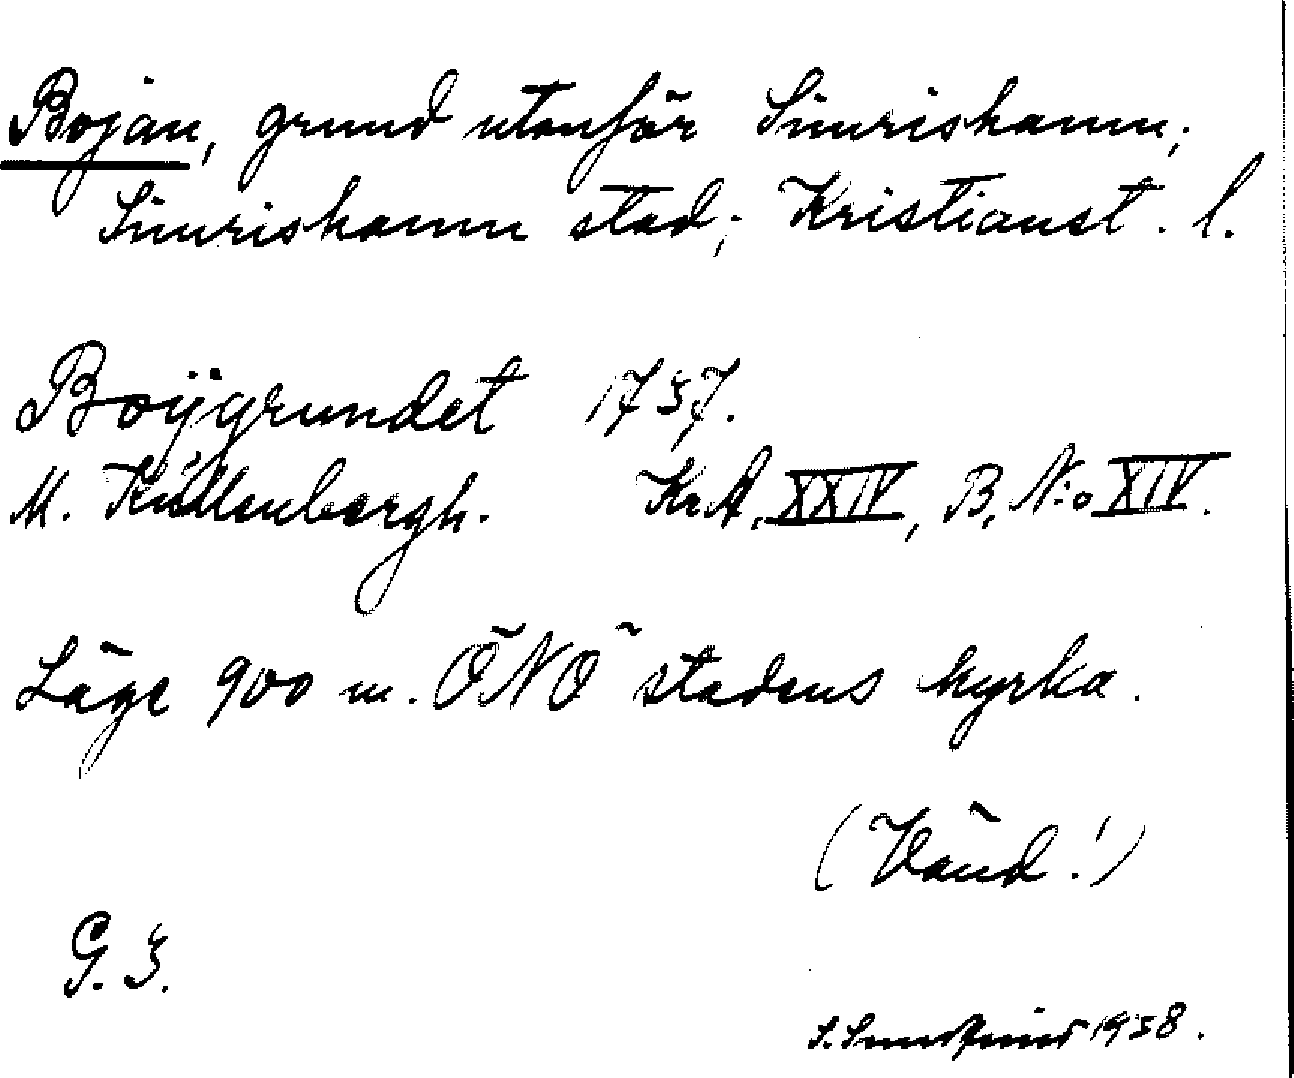 Bojan, grund utanför Simrishamn;
Simrishamn stad; Kristianst. l.
Boÿgrundet 1757.
M. Küllenbergh. Kr.A. XXIV, B, N:o XIV.
Läge 900 m. ÖNÖ stadens kyrka.
(Vänd!)
G. S.
1938.